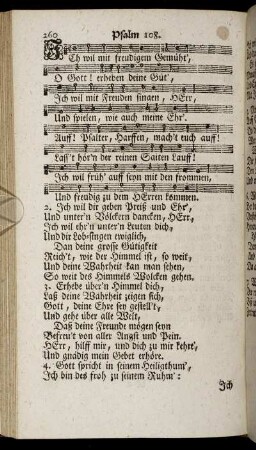 260 Psalm 108.
ICh wil mit freudigem Gemüht',
O Gott! erheben deine Güt',
Ich wil mit Freuden singen, HErr,
Und spielen, wie auch meine Ehr'.
Auff! Psalter, Harffen, mach't euch auff!
Lass't hör'n der reinen Saiten Lauff!
Ich wil früh' auff seyn mit den frommen,
Und freudig zu dem HErren kommen.
2. Ich wil dir geben Preiß und Ehr',
Und unter'n Völckern dancken, HErr,
Ich wil ehr'n unter'n Leuten dich,
Und dir Lob-singen ewiglich,
Dan deine grosse Gütigkeit
Reich't, wie der Himmel ist, so weit,
Und deine Wahrheit kan man sehen,
So weit des Himmels Wolcken gehen.
3. Erhebe über'n Himmel dich,
Laß deine Wahrheit zeigen sich,
Gott, deine Ehre sey gestell't,
Und gehe über alle Welt,
Daß deine Freunde mögen seyn
Befreu't von aller Angst und Pein.
HErr, hilff mir, und dich zu mir kehre',
Und gnädig mein Gebet erhöre.
4. Gott spricht in seinem Heiligthum',
Ich bin des froh zu seinem Ruhm':
Ich